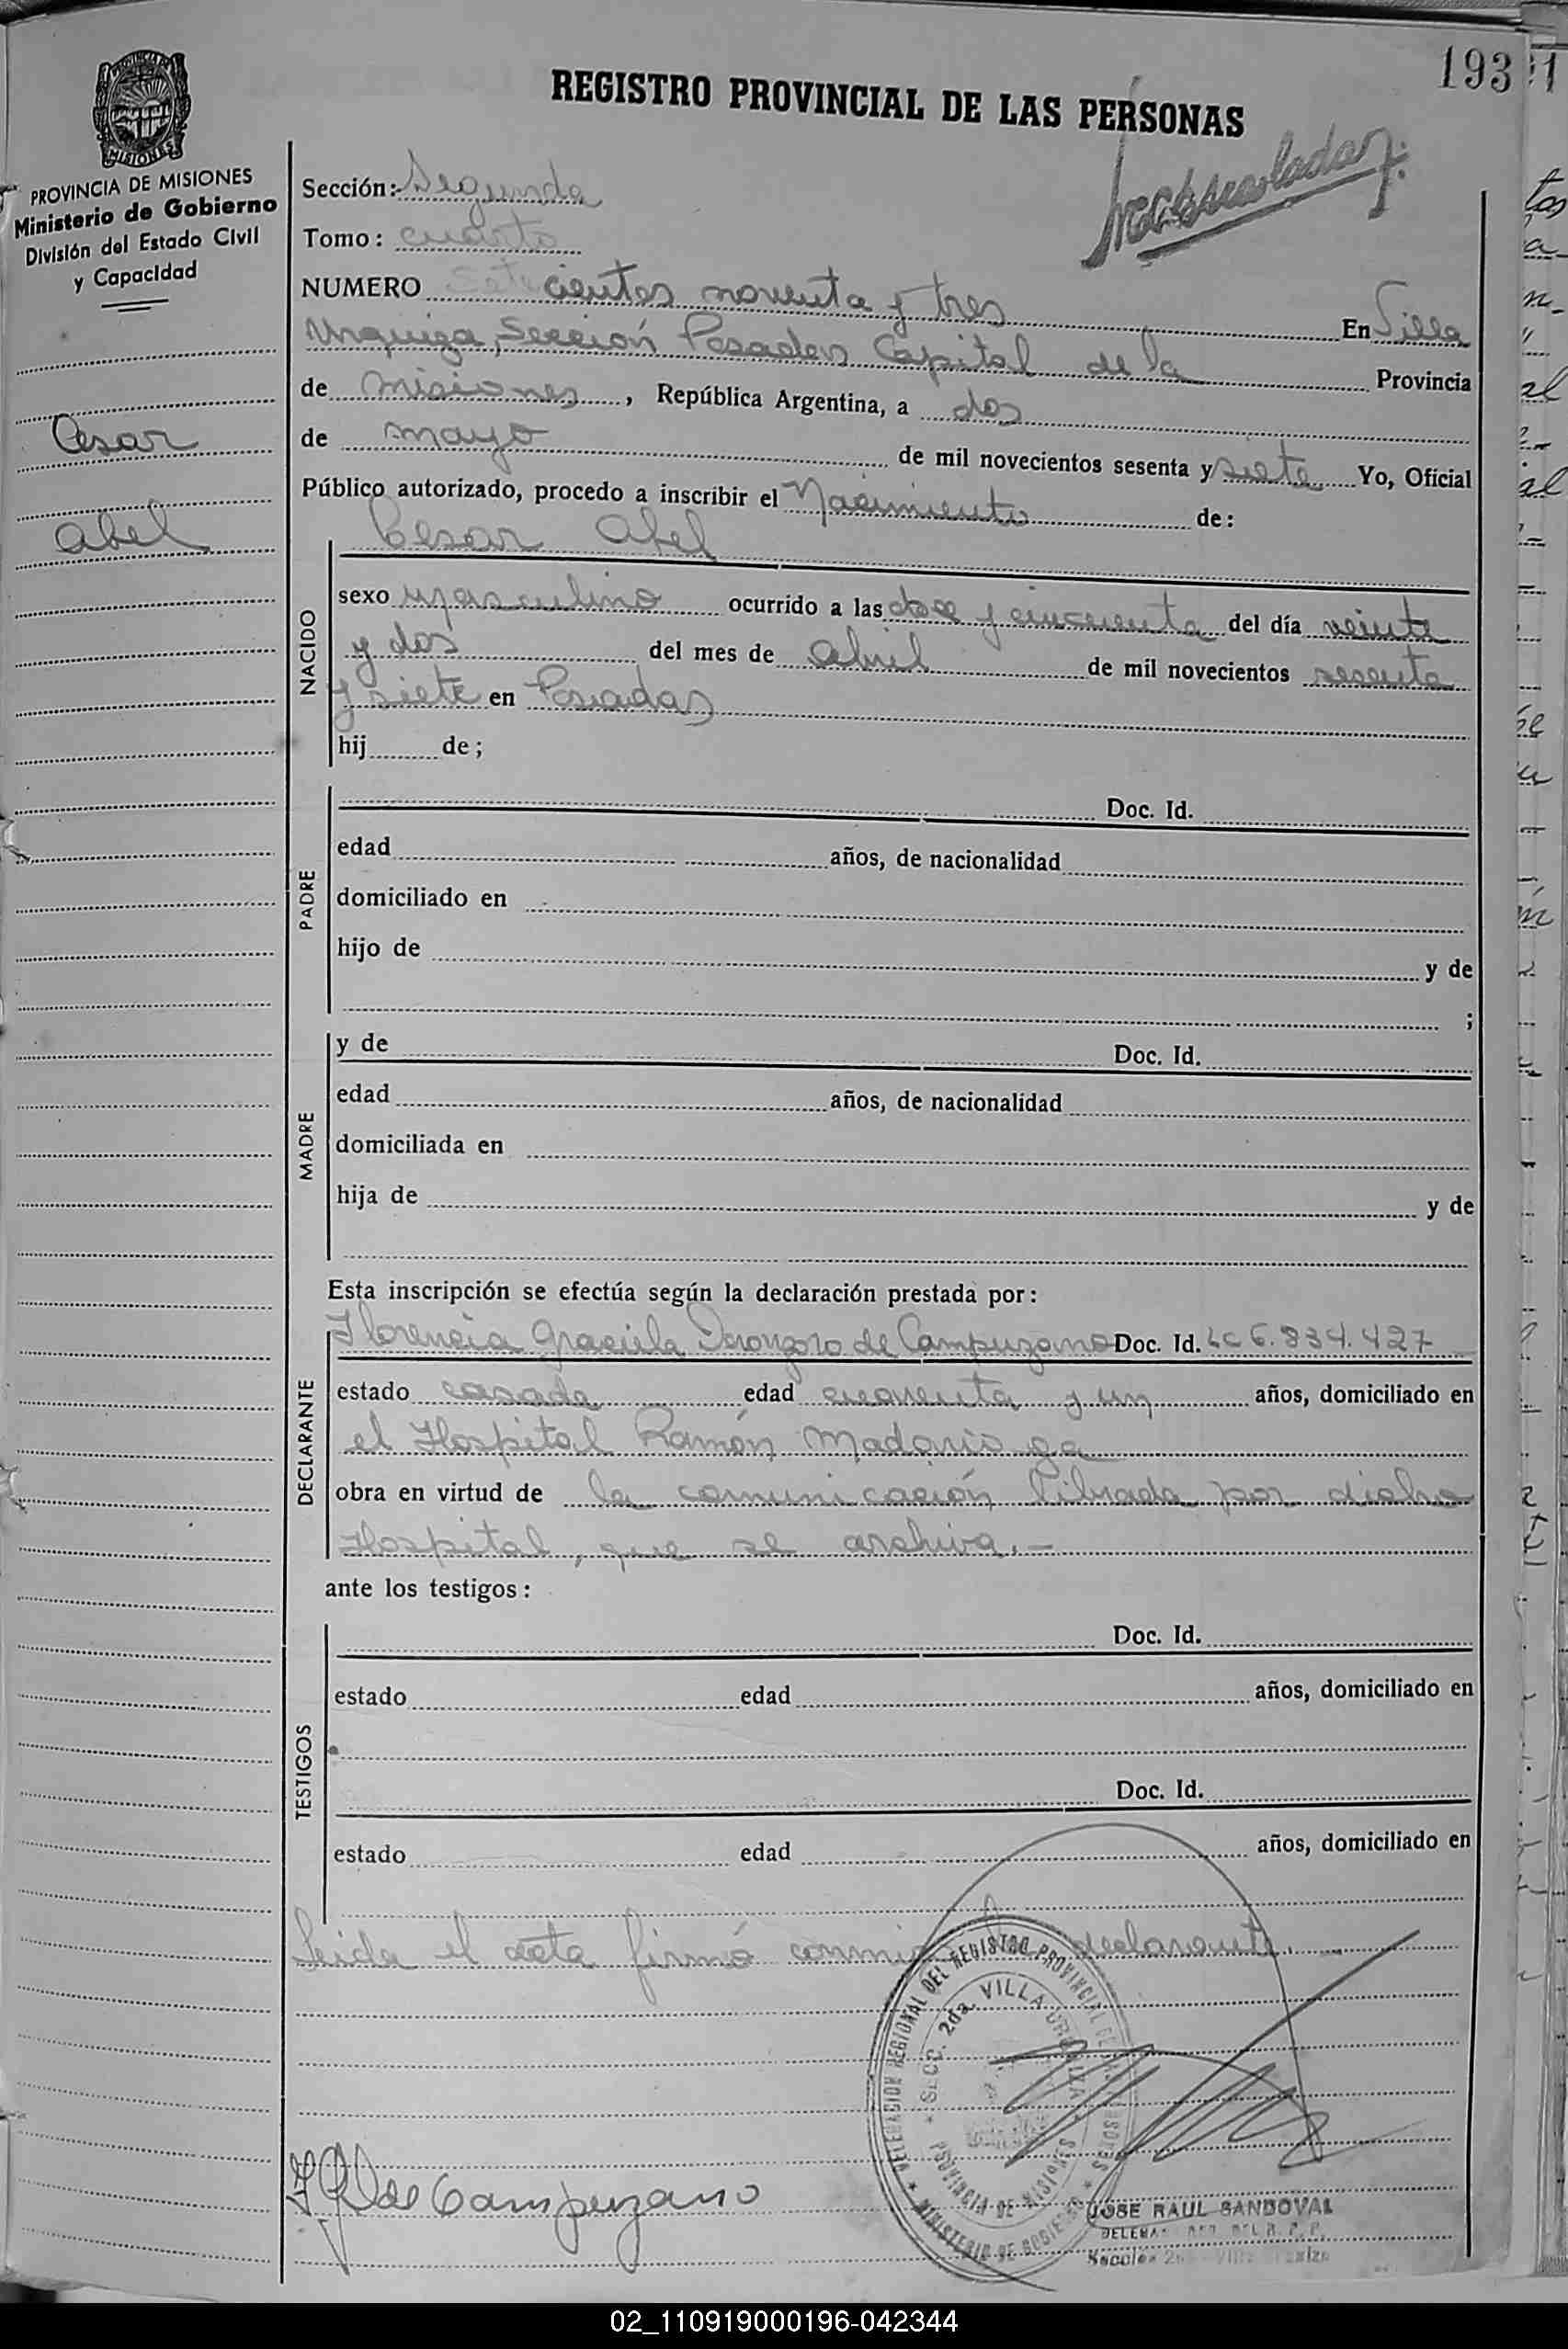 193
REGISTRO PROVINCIAL DE LAS PERSONAS
MISIONES
PROVINCIA DE MISIONES
Ministerio de Gobierno
División del Estado Civil
y Capacidad
Cesar
Abel
Sección: Segunda
Tomo: cuarto
NUMERO Setecientos noventa y tres En Villa
Urquiza, Sección Posadas Capital de la Provincia
de Misiones, República Argentina, a dos
de mayo de mil novecientos sesenta y siete Yo, Oficial
Público autorizado, procedo a inscribir el Nacimiento de:
Cesar Abel
NACIDO
sexo masculino ocurrido a las doce y cincuenta del día veinte
y dos del mes de Abril de mil novecientos sesenta
y siete en Posadas
hij de;
PADRE
Doc. Id.
edad años, de nacionalidad
domiciliado en
hijo de y de
;
MADRE
y de Doc. Id.
edad años, de nacionalidad
domiciliada en
hija de y de
Esta inscripción se efectúa según la declaración prestada por:
DECLARANTE
Florencia Graciela de Campuzano Doc. Id. LC 6.834.427
estado casada edad cuarenta y un años, domiciliado en
el Hospital Ramón Madariaga
obra en virtud de la comunicación librada por dicho
Hospital, que se archiva.-
ante los testigos:
TESTIGOS
Doc. Id.
estado edad años, domiciliado en
Doc. Id.
estado edad años, domiciliado en
Leida el acta firmó conmigo declarante.
DELEGACION REGIONAL DEL REGISTRO PROVINCIAL DE LAS PERSONAS
SECC. 2da. VILLA URQUIZA
PROVINCIA DE MISIONES
MINISTERIO DE GOBIERNO
de Campuzano
JOSE RAUL SANDOVAL
DELEGA DEL R. P. P.
Sección 2 Villa Urquiza
02_110919000196-042344